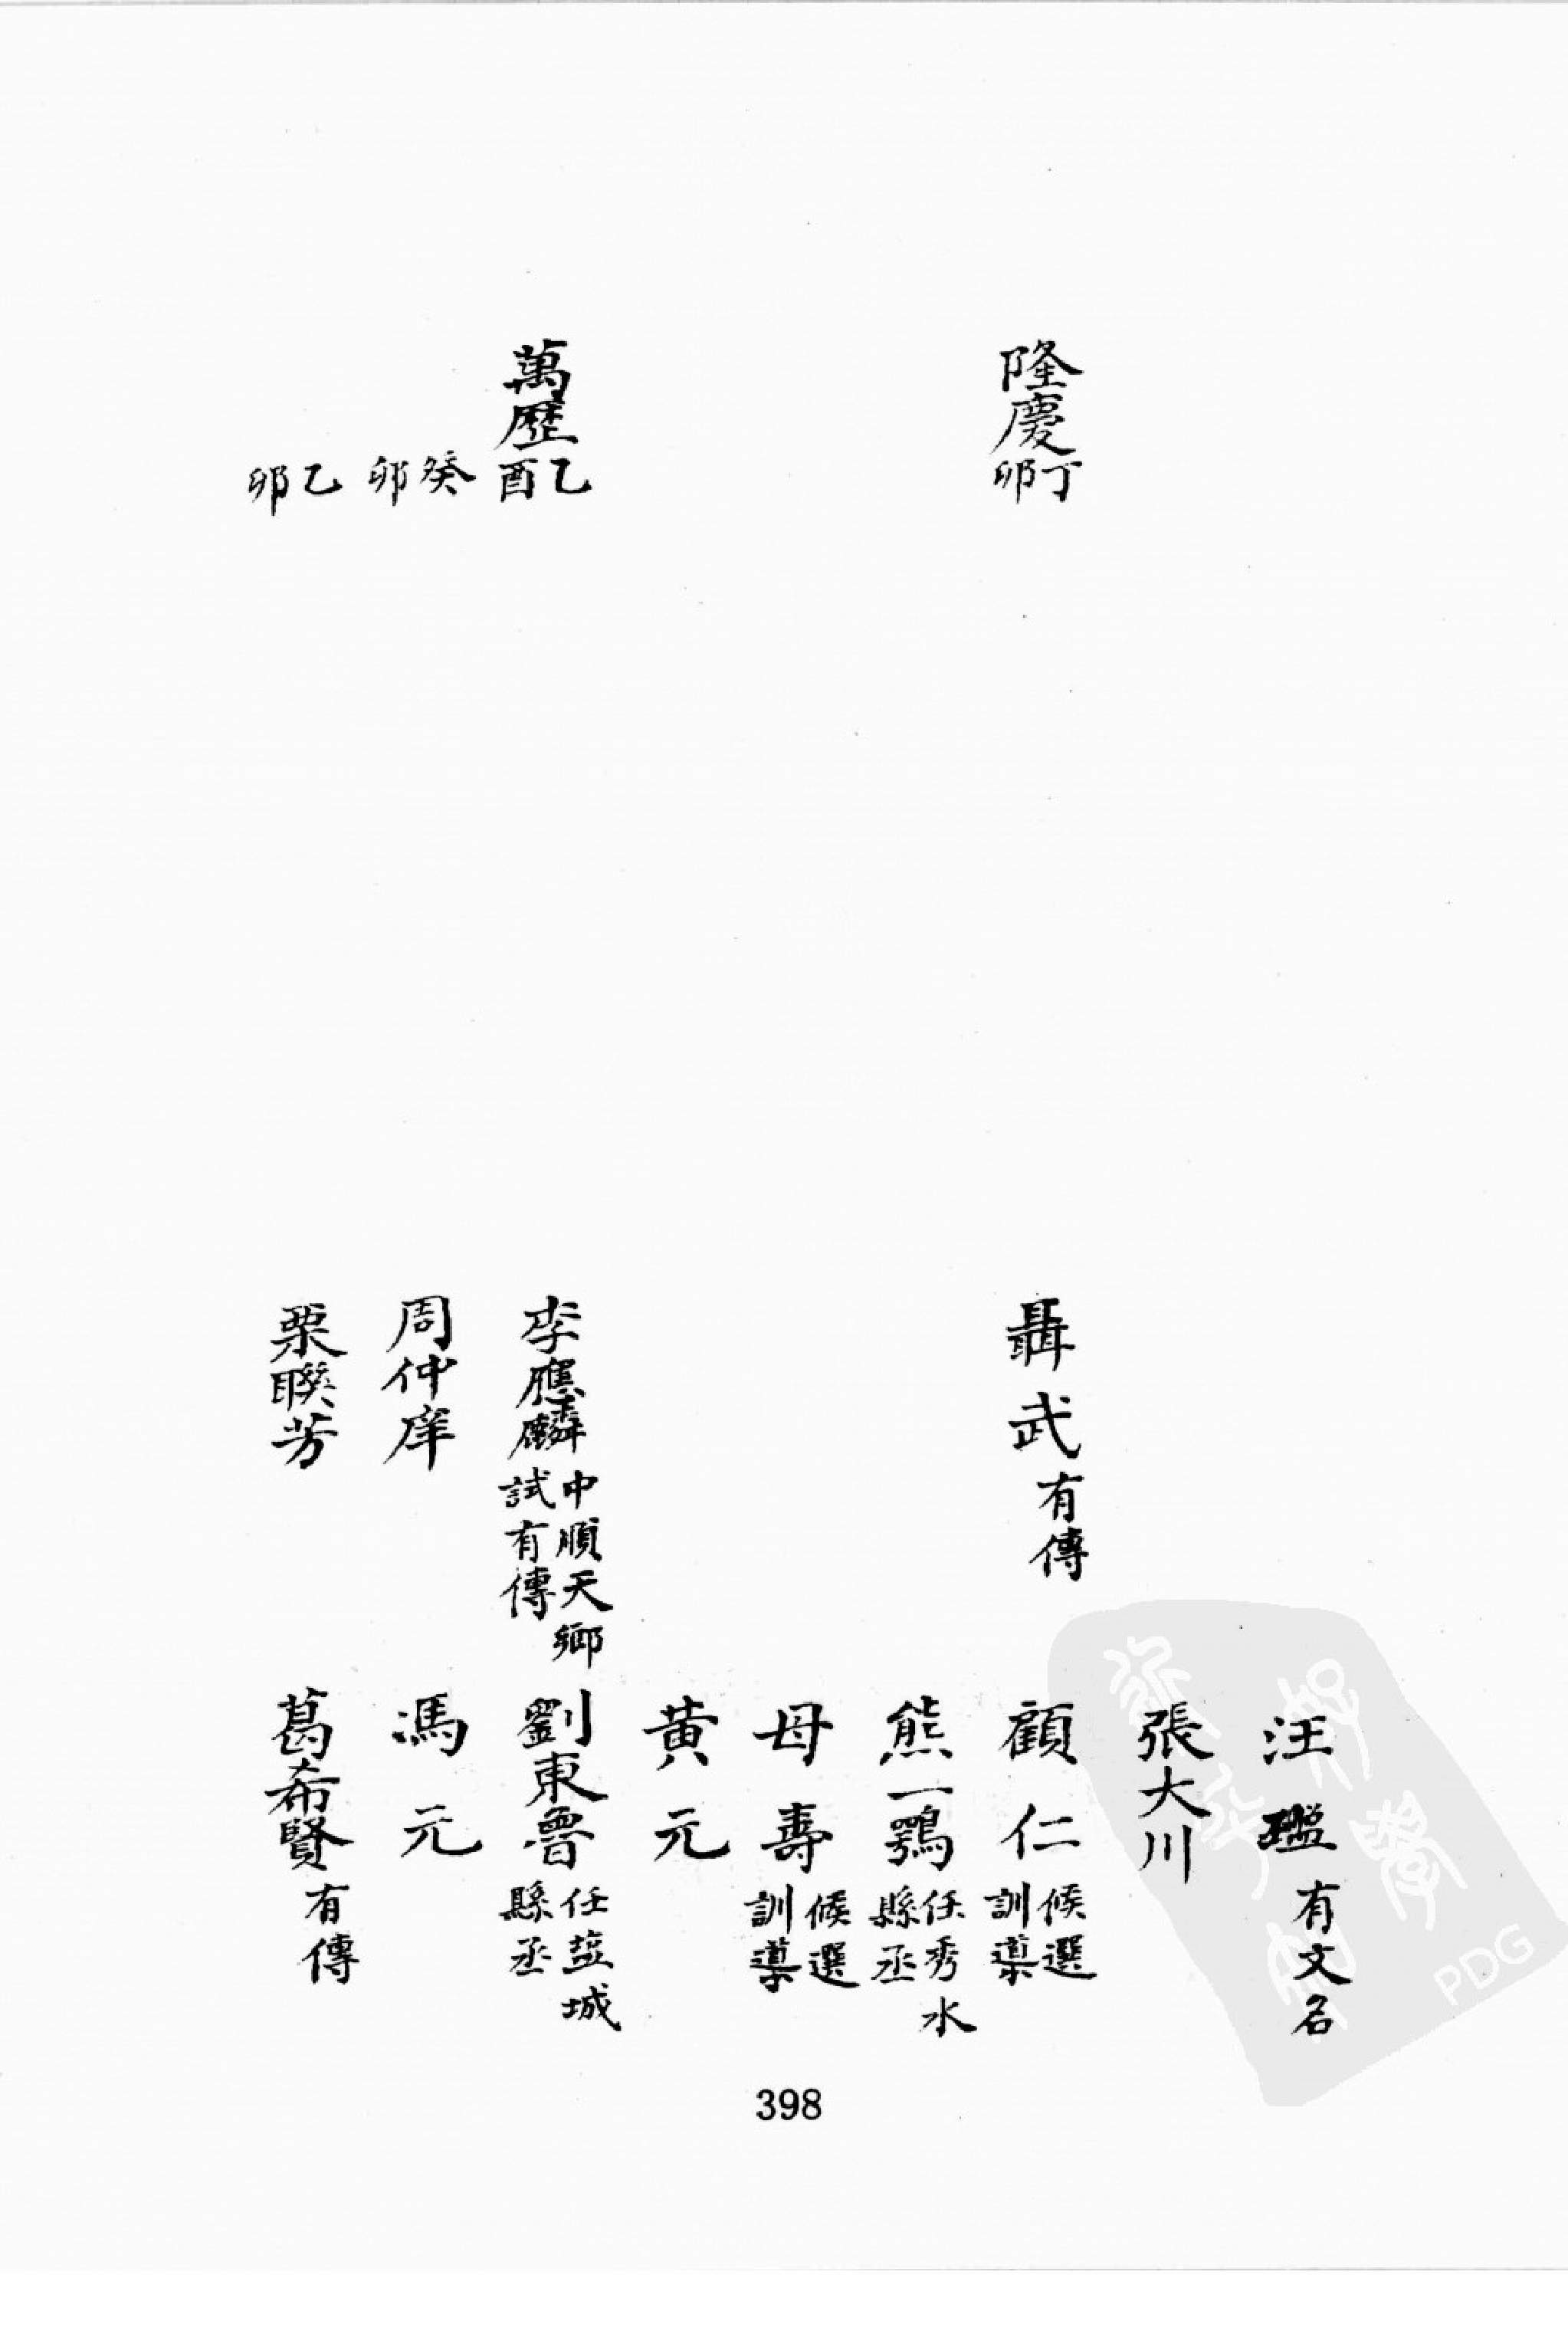 汪瑥有文名
張大川
隆慶丁卯 聶武有傳 顧仁候選訓導
熊一鶚任秀水縣丞
母壽候選訓導
黃元
萬歷乙酉 李應麟中順天鄉試有傳 劉東魯任塩城縣丞
癸卯 周仲庠 馮元
乙卯 栗聯芳 葛希賢有傳
398
PDG